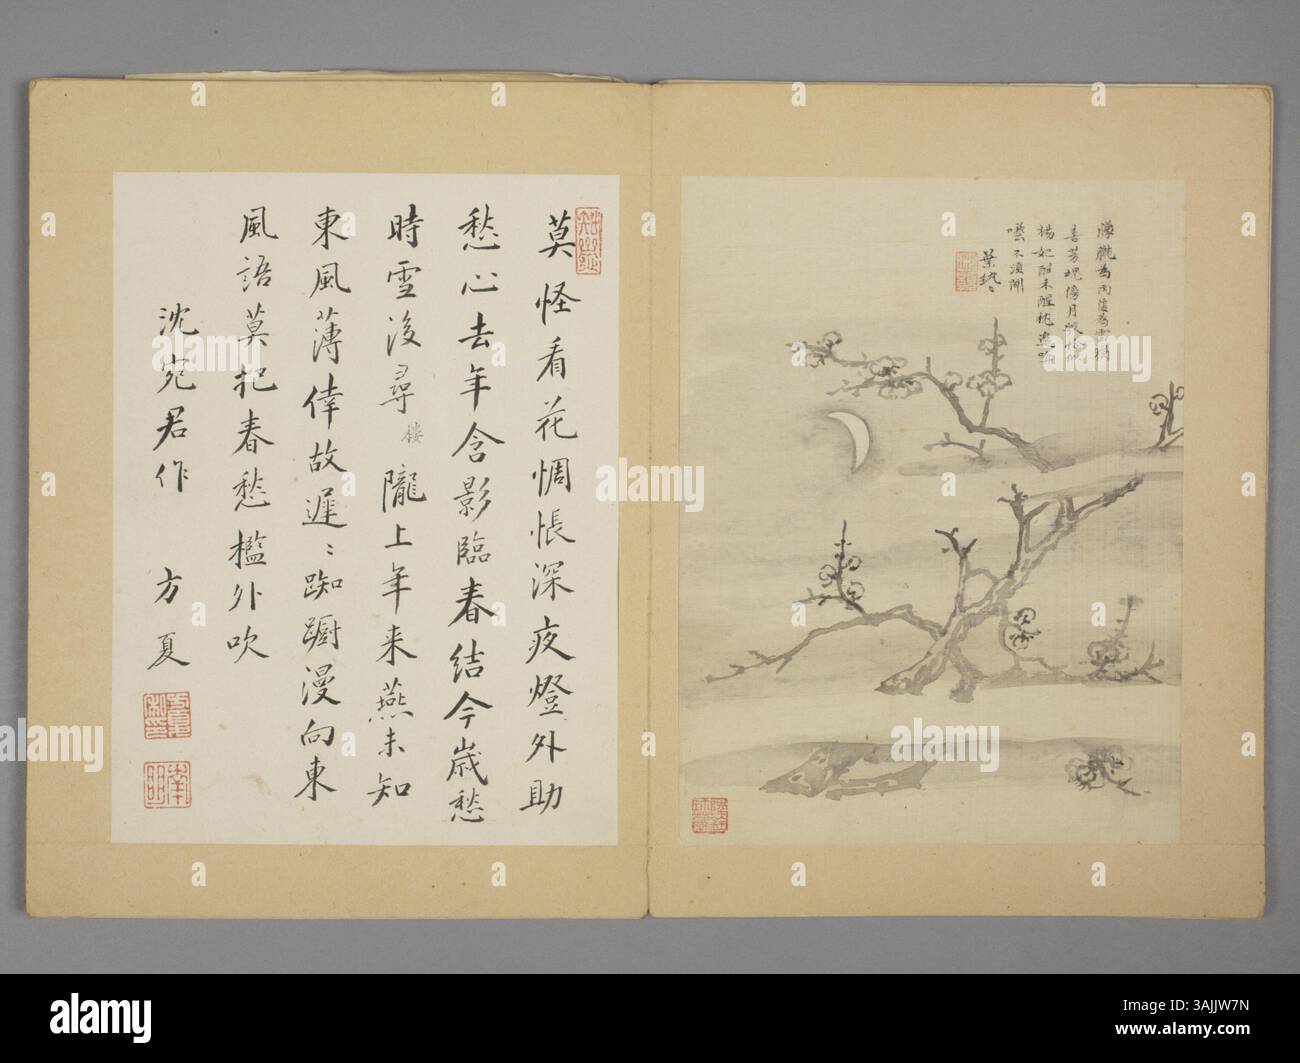 莫怪看花惆悵深夜燈外助
愁心去年含影臨春結今歲愁
時雪後尋 樓 隴上年来燕未知
東風薄倖故遲〻踟躕漫向東
風語莫把春愁檻外吹
沈宛君作 方夏
喜芳魂傍月
楊妃醉未醒
不須開
alamy
Image ID: 3AJJW7N
www.alamy.com